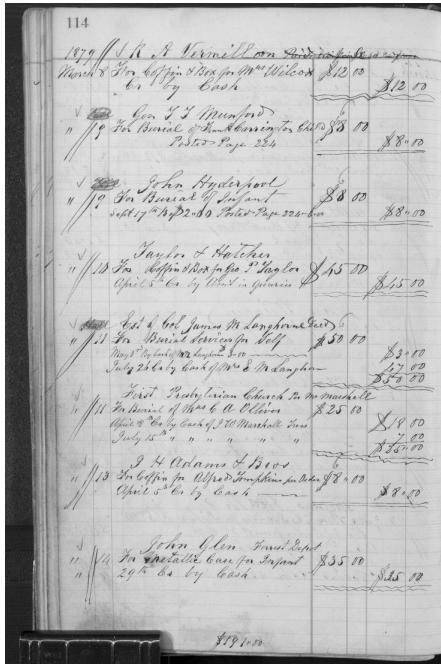 114
1879 J R A Vermillion
March 8 For Coffin & Box for Mrs Wilcox $12 00
Cr by Cash $12 00
Gen T T Munford
" 9 For Burial of Frank Carrington Child $8 00
Posted Page 224 $8 00
John Hyderpool
" 9 For Burial of Infant $8 00
Sept 17th Posted Page 224 $8 00
Taylor & Hatcher
" 10 For Coffin & Box for Geo P Taylor $45 00
April 5th Cr by $45 00
Est of Col James M Langhorne Decd
" 11 For Burial Services for Self $50 00
May 5th By Cash of Langhorne 3.00 $3.00
July 26 by Cash of Mrs E M Langhorne 47 00
$50 00
First Presbyterian Church Per Mr Marshall
" 11 For Burial of Mrs C A Oliver $25 00
April Cr by Cash of J W Marshall $18 00
July 15th " " " " " 7 00
$25 00
J H Adams & Bros
" 13 For Coffin for Alfred Tompkins $8 00
April 5th Cr by Cash $8 00
John Glen Forrest Depot
" 14 For Metallic Case for Infant $35 00
" 29th Cr by Cash $35 00
$191.00